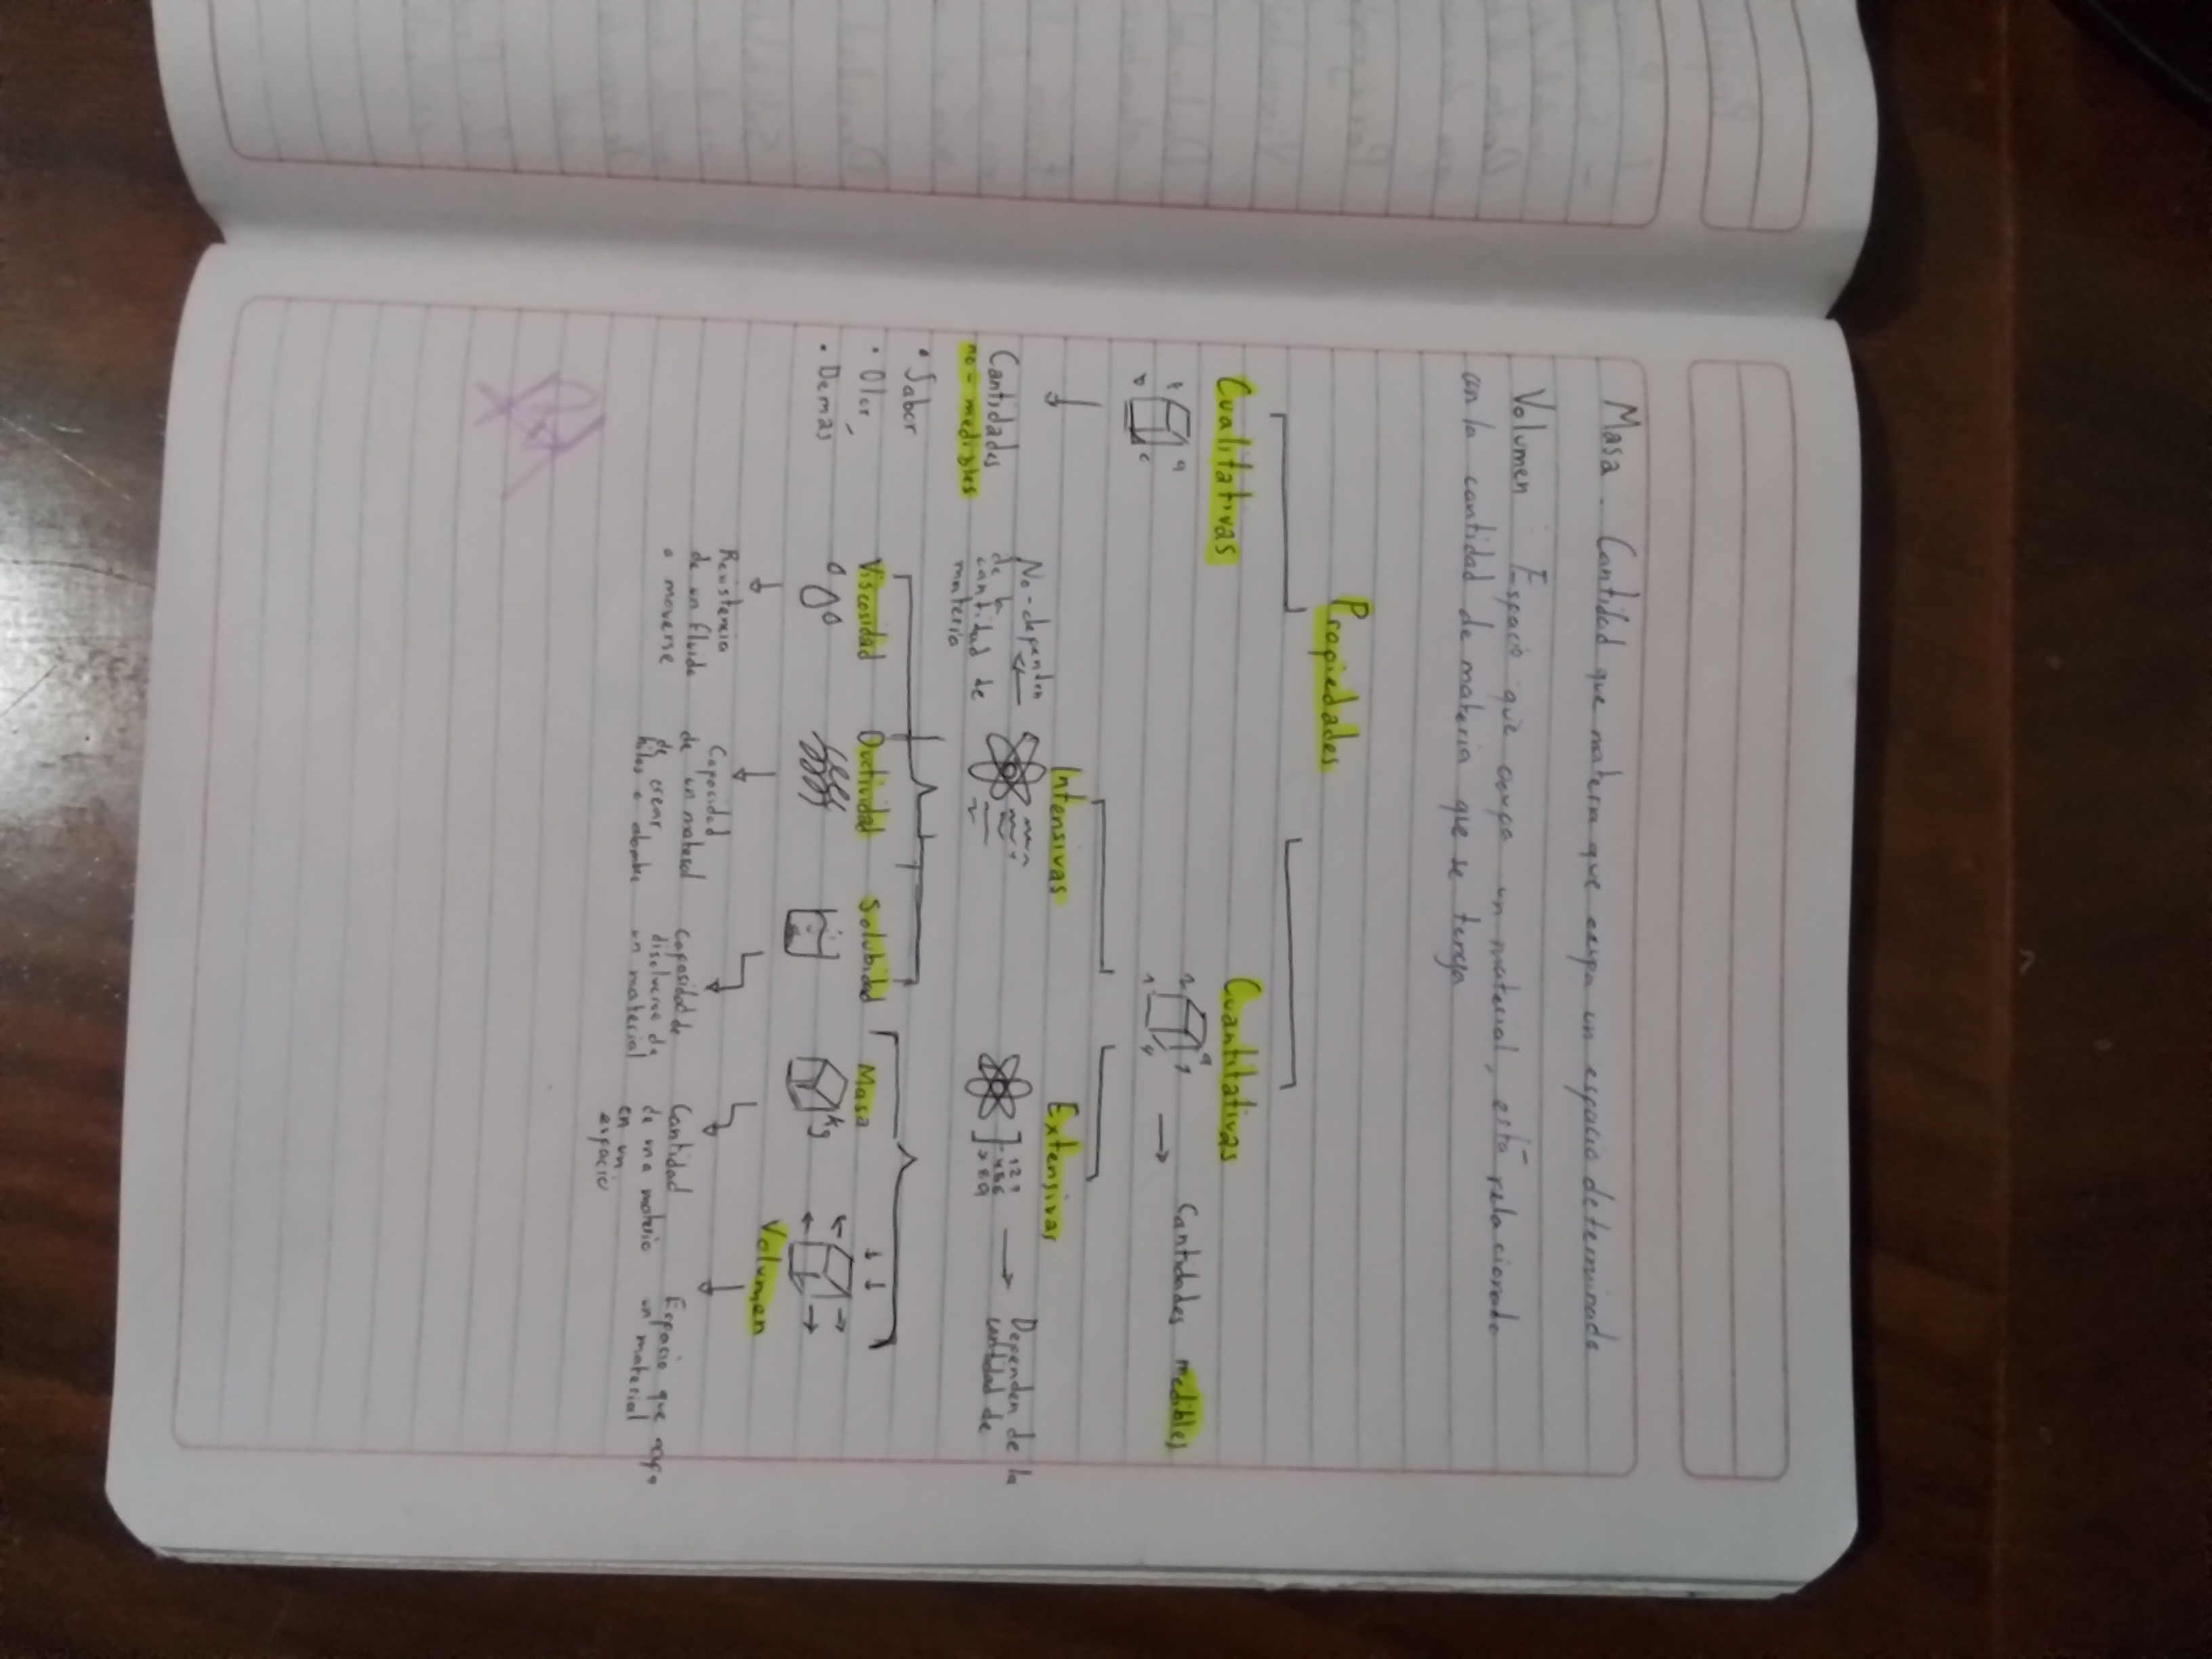 Masa. Cantidad que materia que ocupa un espacio determinado
Volumen Espacio que ocupa un material, está relacionado
con la cantidad de materia que se tenga
Propiedades
Cualitativas
Cuantitativas
Cantidades medibles
Intensivas
Extensivas
Cantidades
no-medibles
• Sabor
• Olor,
• Demas
No-dependen
de la
cantidad de
materia
Dependen de la
cantidad de
Viscosidad
Ductividad
Solubidad
Masa
Kg
Volumen
Resistencia
de un fluido
a moverse
Capacidad
de un material
de crear
hilos o alambre
Capasidad de
disolverse de
un material
Cantidad
de una materia
en un
espacio
Espacio que
un material